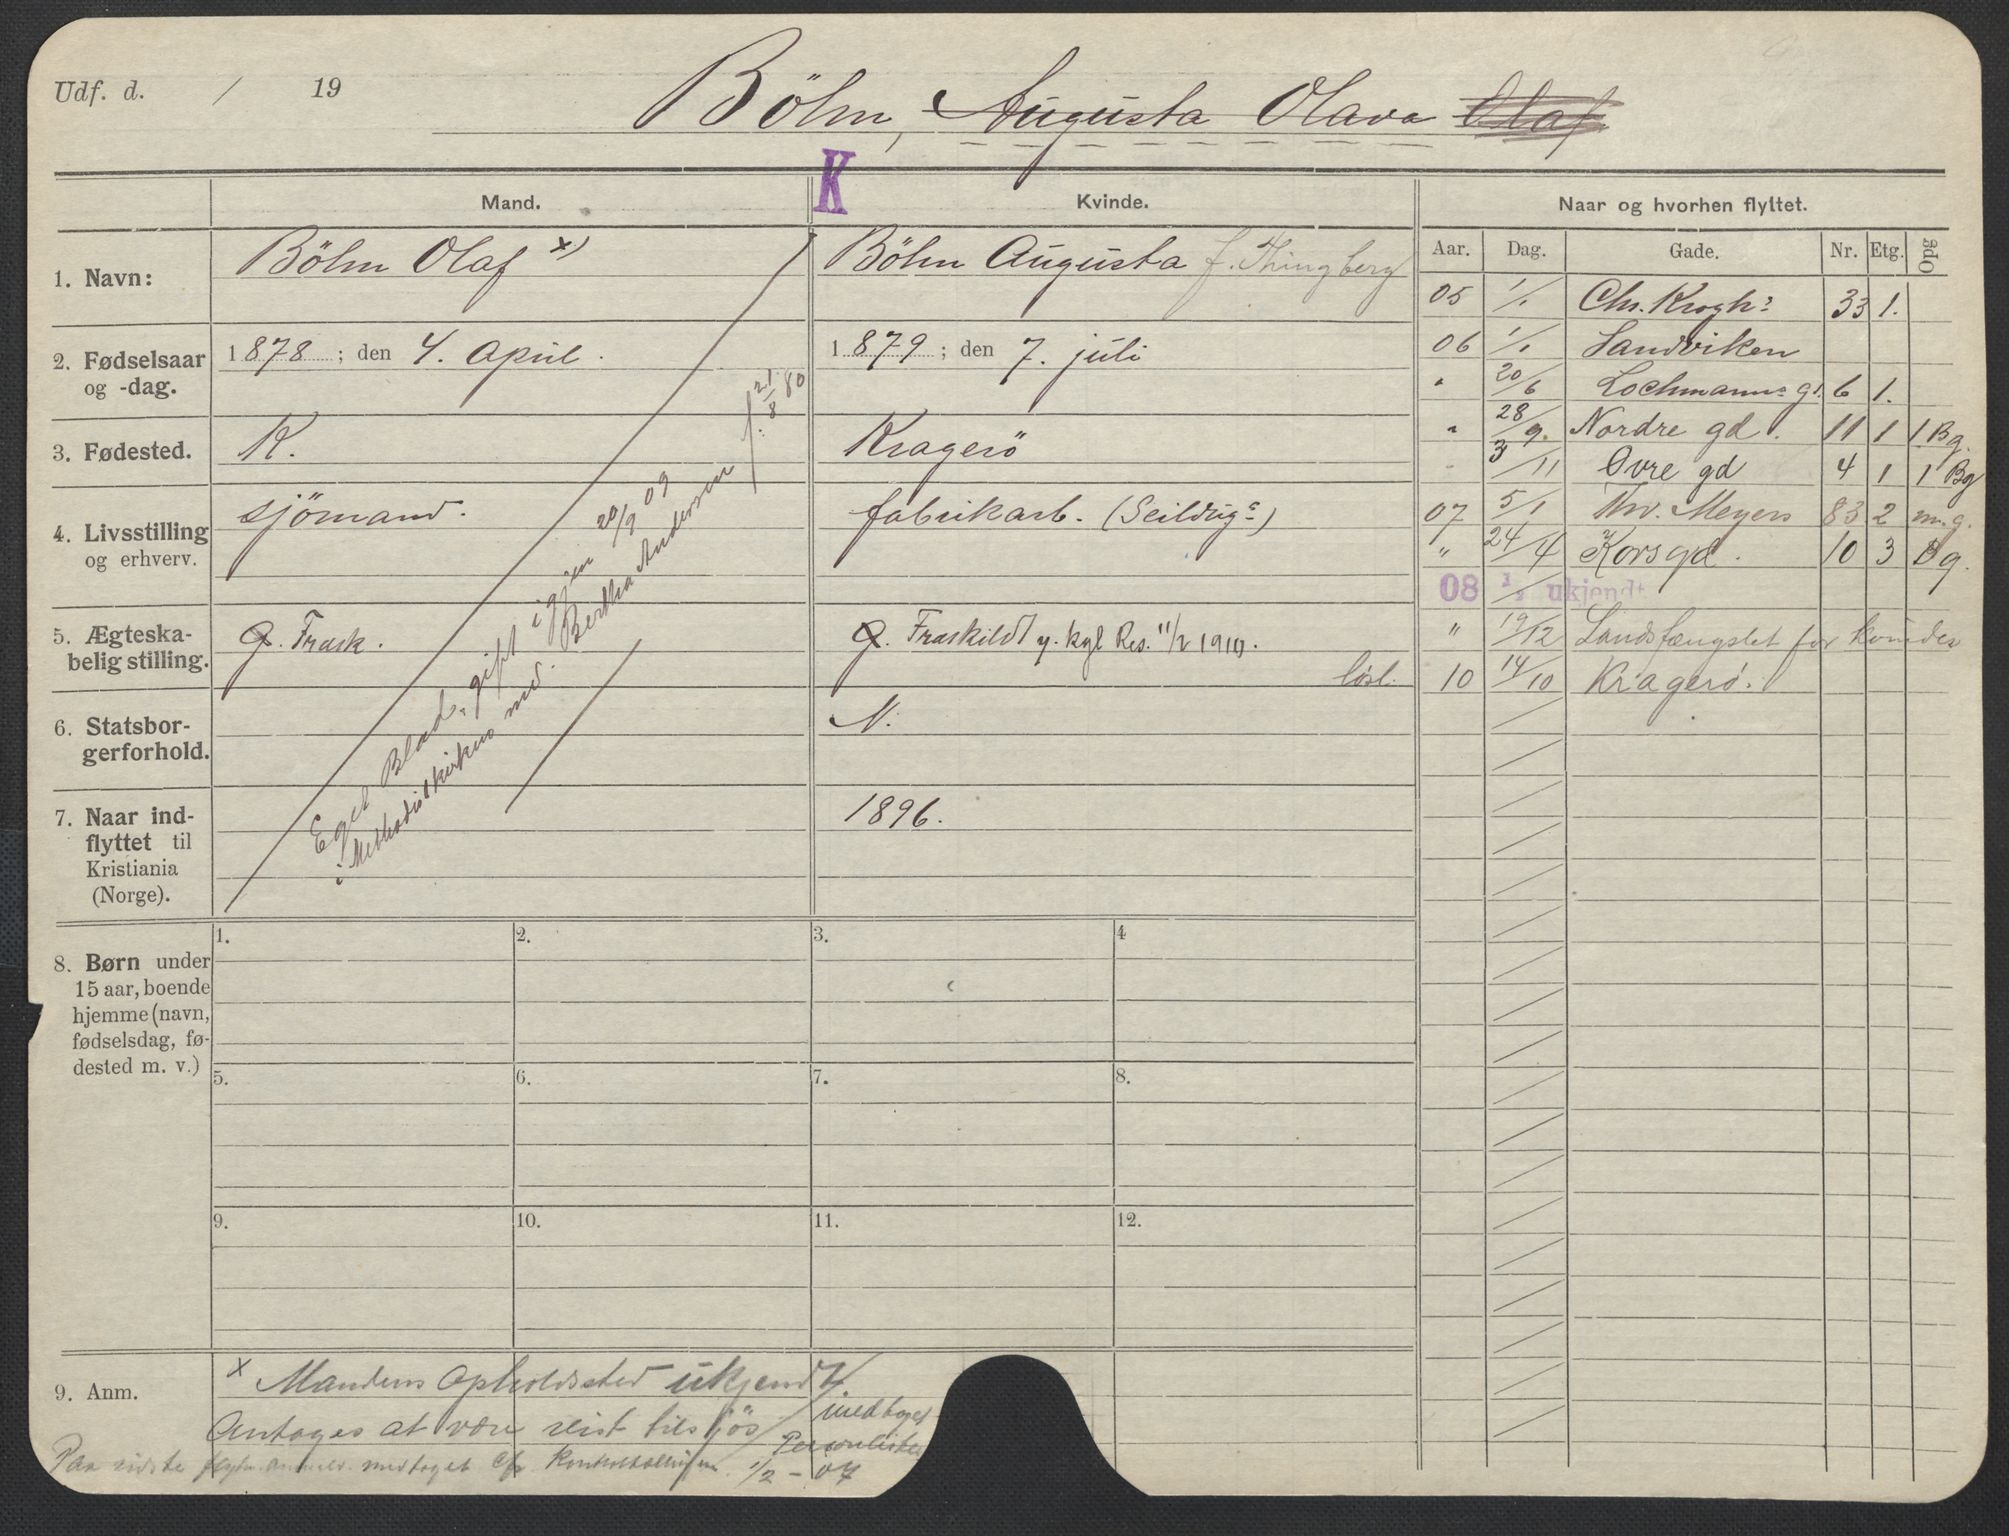 Udf. d. / 19
Böhm, Augusta Olava Olaf
K
Mand.
Kvinde.
Naar og hvorhen flyttet.
Aar. Dag. Gade. Nr. Etg. Opg
1. Navn:
Böhm Olaf x)
Böhm Augusta f. Thingberg
2. Fødselsaar
og -dag.
1878 ; den 4. April.
1879 ; den 7. juli
3. Fødested.
K.
Kragerö
4. Livsstilling
og erhverv.
sjömand.
fabrikarb. (Seildugs)
5. Ægteska-
belig stilling.
G. Frask.
G. Fraskildt y. kgl Res. 11/2 1910.
løsl.
6. Statsbor-
gerforhold.
N.
7. Naar ind-
flyttet til
Kristiania
(Norge).
1896.
Eget Blad, gift igjen 20/9 09
i Methodistkirken md. Bertha Andersen f. 21/8 80
05 1/1 Chr. Kroghs 33 1.
06 1/1 Sandviken
" 20/6 Lochmanns gt. 6 1.
" 28/9. Nordre gd. 11 1 1 Bg.
3/11 Övre gd 4 1 1 Bg
07 5/1 Thv. Meyers 83 2 m.g.
" 24/4 Korsgd. 10 3 Bg.
08 ukjendt
" 19/12 Landsfængslet for kvinder
10 14/10 Kragerø.
8. Børn under
15 aar, boende
hjemme (navn,
fødselsdag, fø-
dested m. v.)
1. 2. 3. 4
5. 6. 7. 8.
9. 10. 11. 12.
9. Anm.
x Mandens Opholdssted ukjendt.
Antages at være reist tilsjös
medtaget
Personlisten
Paa sidste medtaget 1/2 - 07